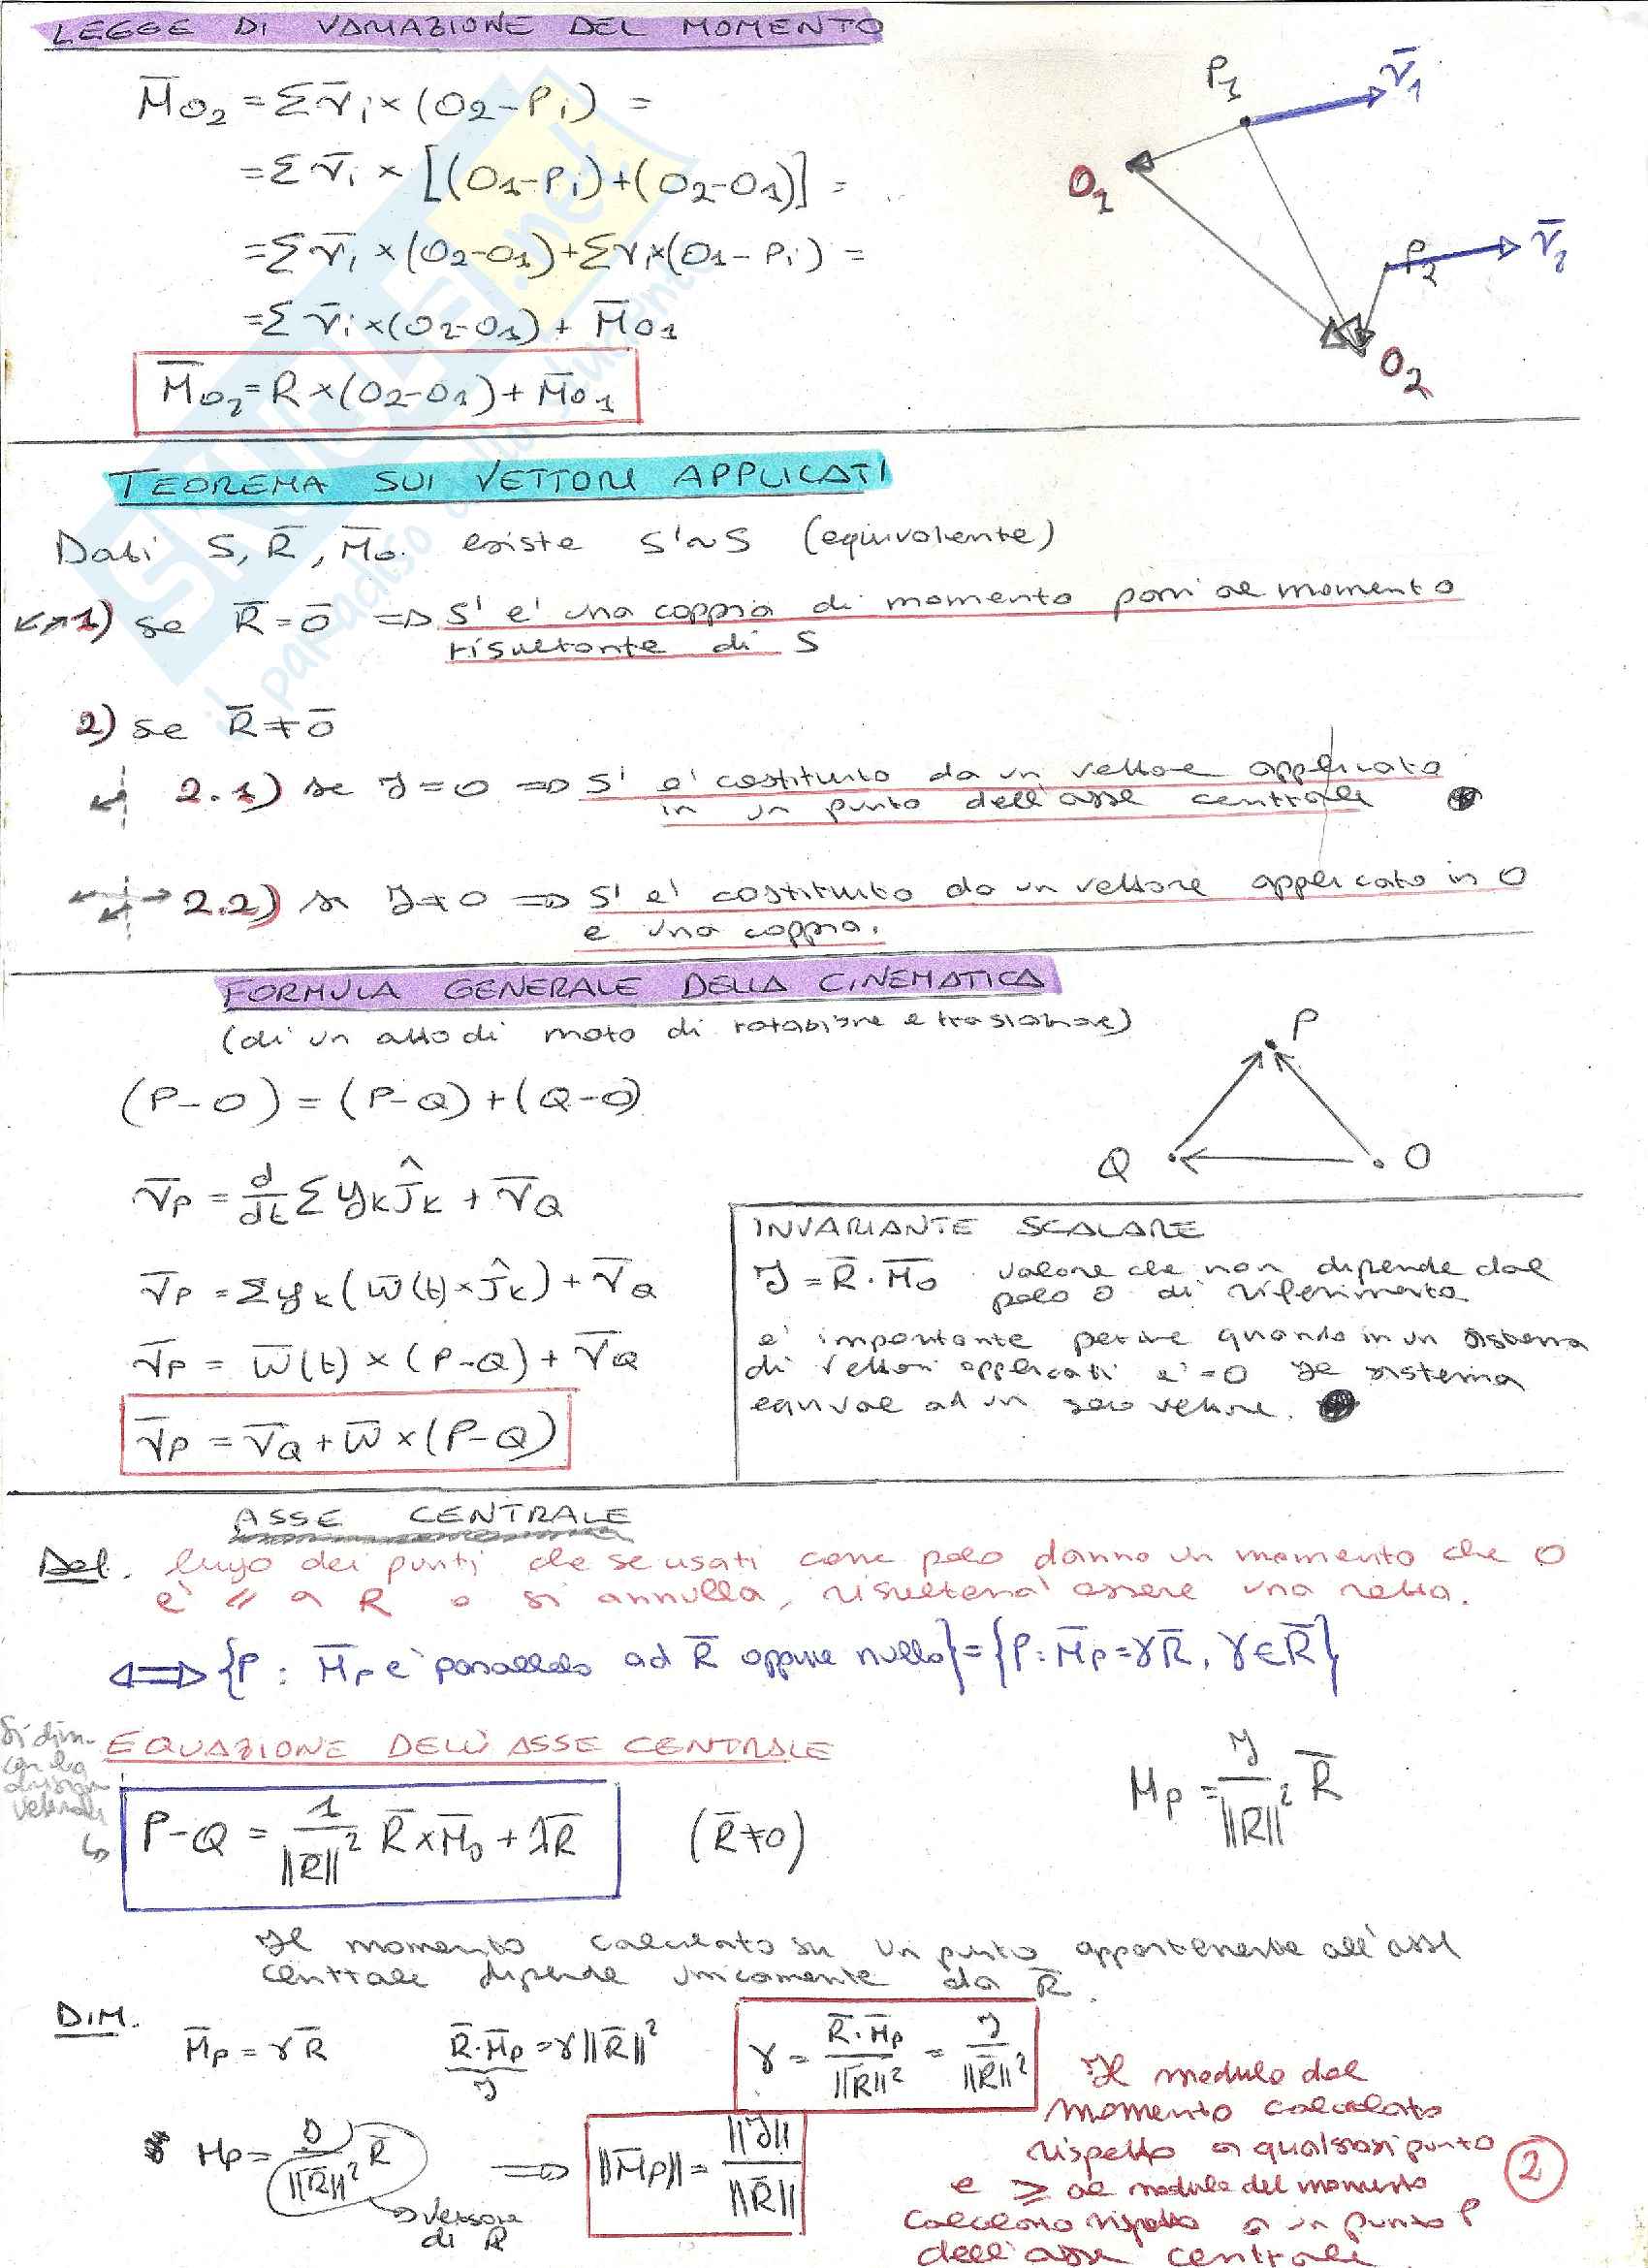 LEGGE DI VARIAZIONE DEL MOMENTO
M̅O₂ = Σv̅i×(O₂-Pi) =
= Σ v̅i × [(O₁-Pi)+(O₂-O₁)] =
= Σ v̅i ×(O₂-O₁)+Σvi×(O₁-Pi) =
= Σ v̅i×(O₂-O₁) + M̅O₁
M̅O₂ = R×(O₂-O₁)+M̅O₁
P₁
v̅₁
O₁
P₂
v̅₂
O₂
TEOREMA SUI VETTORI APPLICATI
Dati S, R̅, M̅o. esiste S'~S (equivalente)
1) se R̅=o̅ ⇒ S' e' una coppia di momento pari al momento
risultante di S
2) se R̅≠o̅
2.1) se J=0 ⇒ S' e' costituito da un vettore applicato
in un punto dell'asse centrale
2.2) se J≠0 ⇒ S' e' costituito da un vettore applicato in O
e una coppia.
FORMULA GENERALE DELLA CINEMATICA
(di un atto di moto di rotazione e traslazione)
(P-O) = (P-Q)+(Q-O)
v̅P = d/dt Σ yk ĵk + v̅Q
v̅P = Σ yk (w̅(t)×ĵk)+v̅Q
v̅P = w̅(t) × (P-Q)+v̅Q
v̅P = v̅Q+w̅×(P-Q)
P
Q
O
INVARIANTE SCALARE
J = R̅·M̅o valore che non dipende dal
polo O di riferimento
e' importante perche quando in un sistema
di vettori applicati e' =0 il sistema
equivale ad un solo vettore.
ASSE CENTRALE
Def. luogo dei punti che se usati come polo danno un momento che o
e' // a R o si annulla, risultera' essere una retta.
⇔ {P : M̅P e' parallelo ad R̅ oppure nullo}={P: M̅P=γR̅, γ∈R̅}
Si dim.
con la
divisione
vettoriale
EQUAZIONE DELL'ASSE CENTRALE
P-Q = 1/||R||² R̅×M̅o + λR̅ (R̅≠0)
MP = J/||R||² R̅
Il momento calcolato su un punto appartenente all'asse
centrale dipende unicamente da R̅.
DIM.
M̅P = γR̅ R̅·M̅P = γ||R̅||² γ = R̅·M̅P/||R̅||² = J/||R̅||²
J
MP = J/||R̅||² R̅ ⇒ ||M̅P|| = ||J||/||R̅||
versore
di R
Il modulo del
momento calcolato
rispetto a qualsiasi punto
e ≥ al modulo del momento
calcolato rispetto a un punto P
dell'asse centrale.
2
SKUOLA.net
il paradiso dello studente